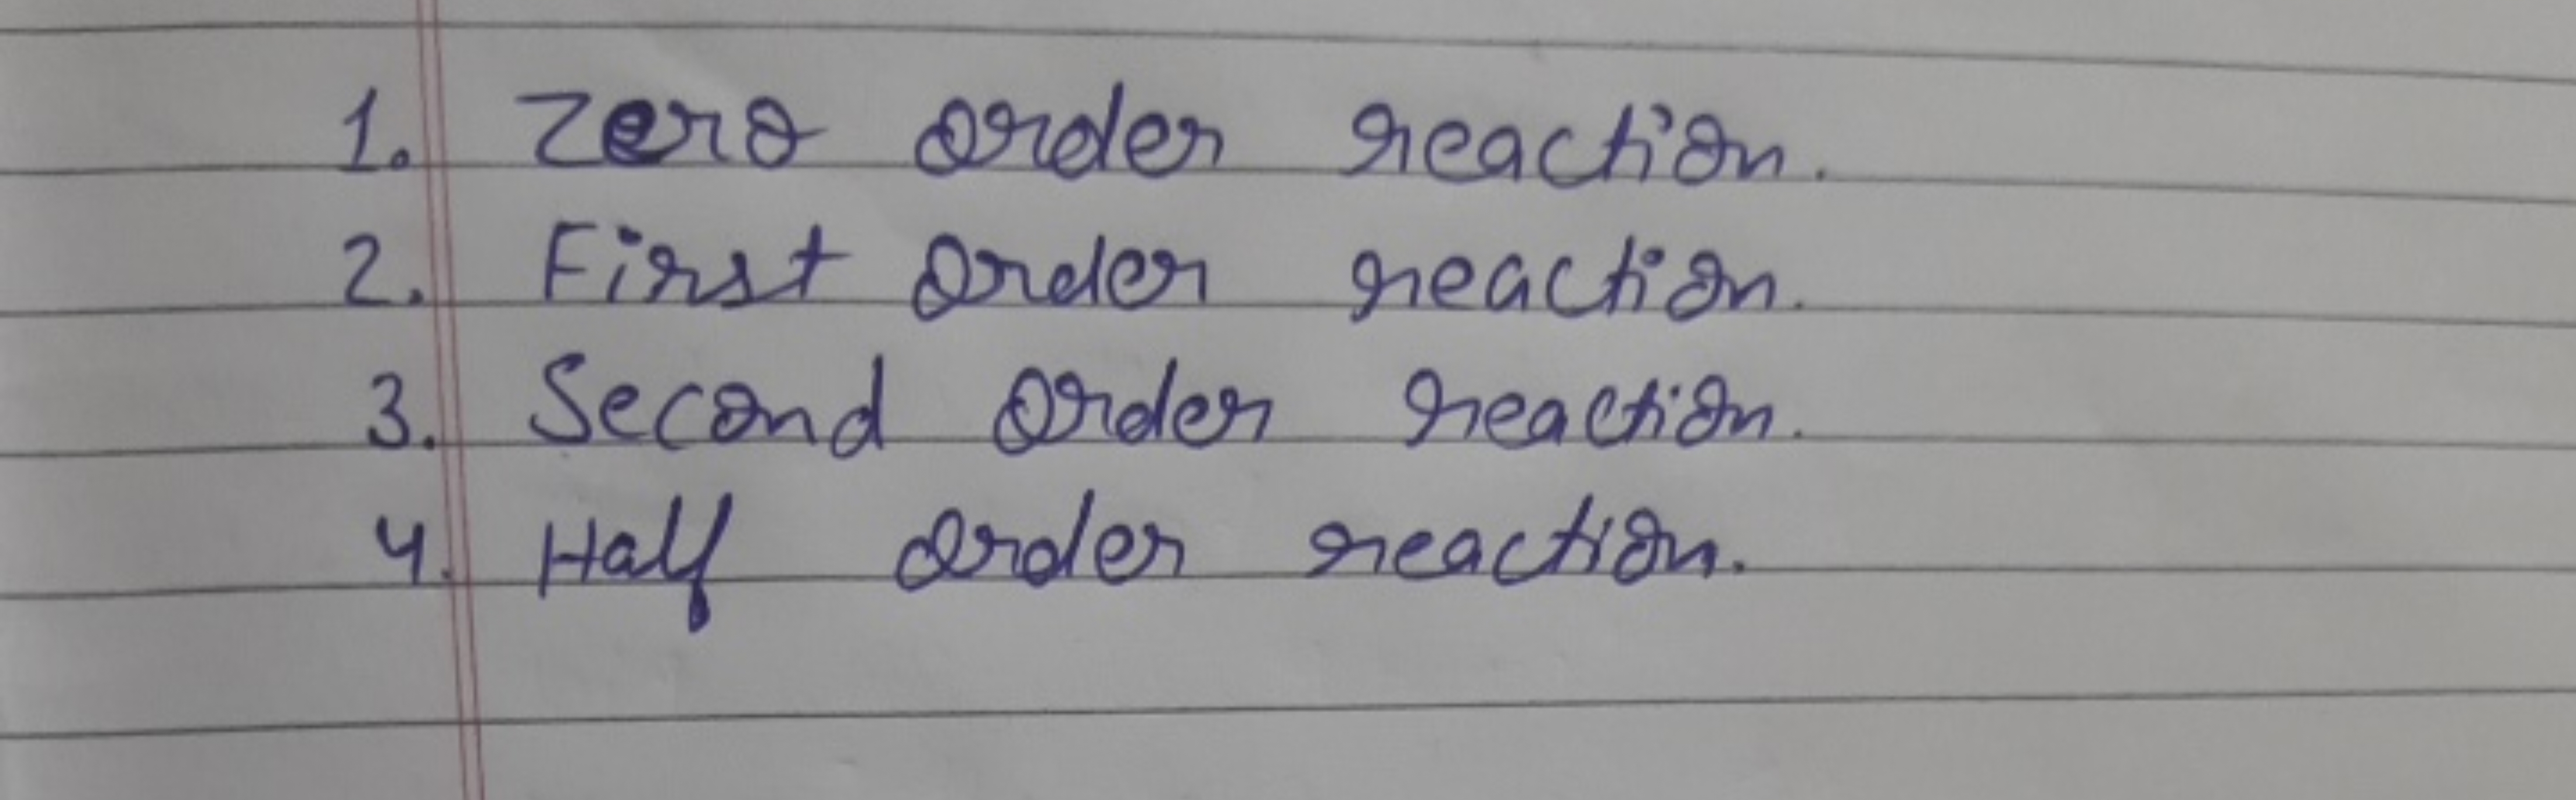 1. Zero order reaction.
2. First order reaction.
3. Second order reaction.
4. Half order reaction.